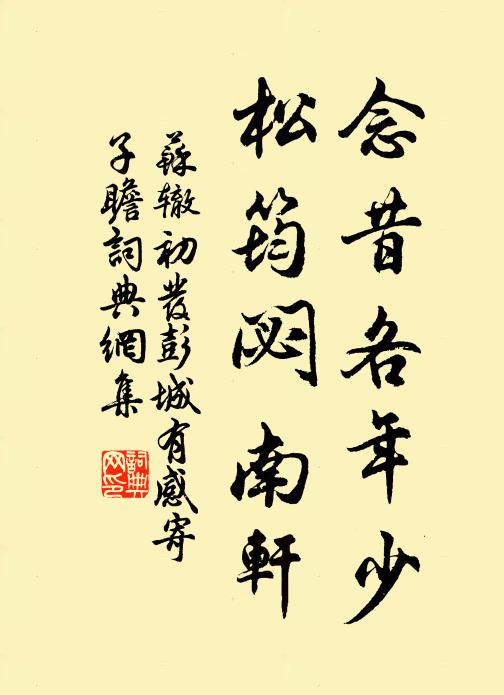 念昔各年少
松筠閟南軒
蘇轍初發彭城有感寄
子瞻詞典網集
詞典網印